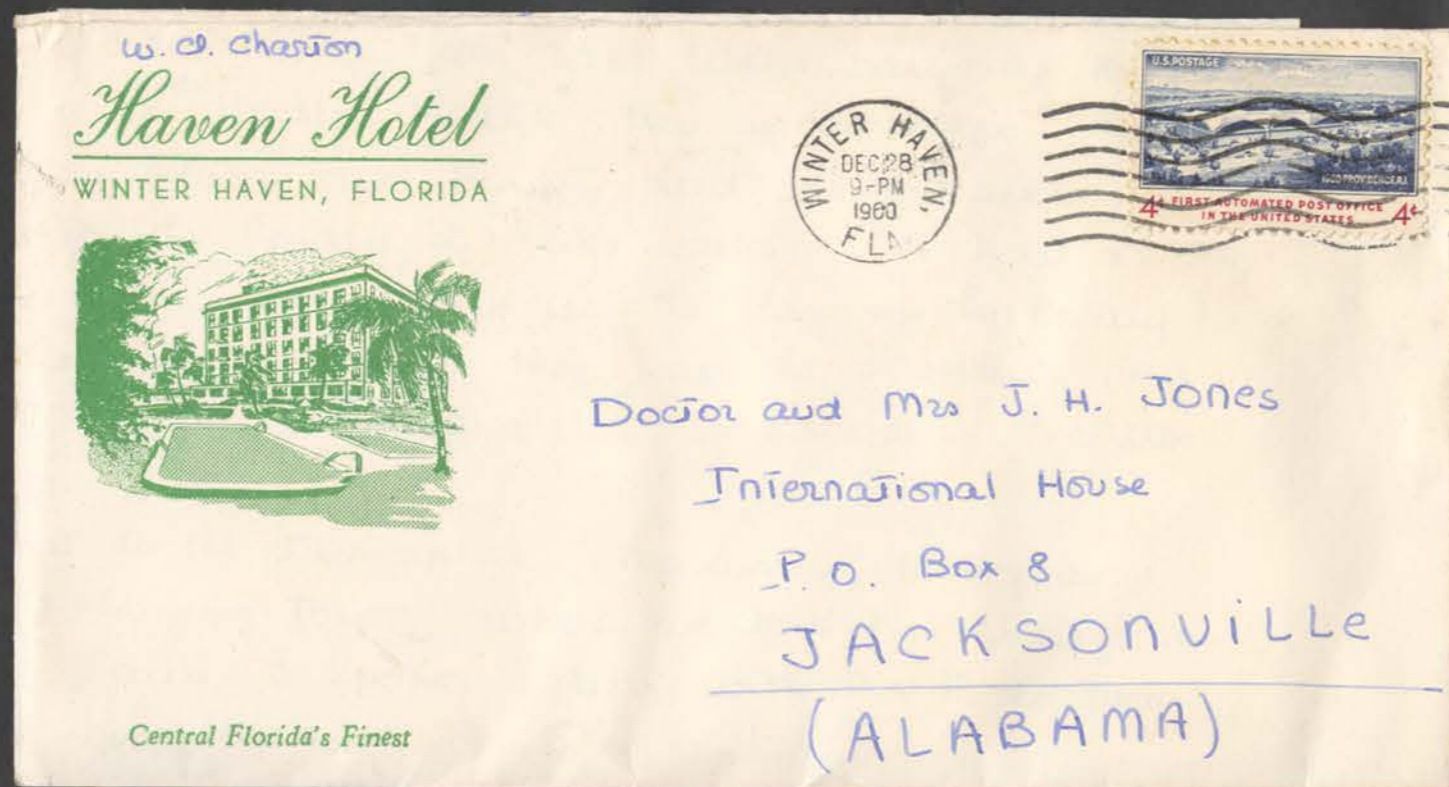 W. Cl. Charton
Haven Hotel
WINTER HAVEN, FLORIDA
Central Florida's Finest
WINTER HAVEN, FLA
DEC 28
9-PM
1960
U.S. POSTAGE
1960 PROVIDENCE R.I.
4¢ FIRST AUTOMATED POST OFFICE 4¢
IN THE UNITED STATES
Doctor and Mrs J. H. Jones
International House
P. O. Box 8
JACKSONVILLE
(ALABAMA)